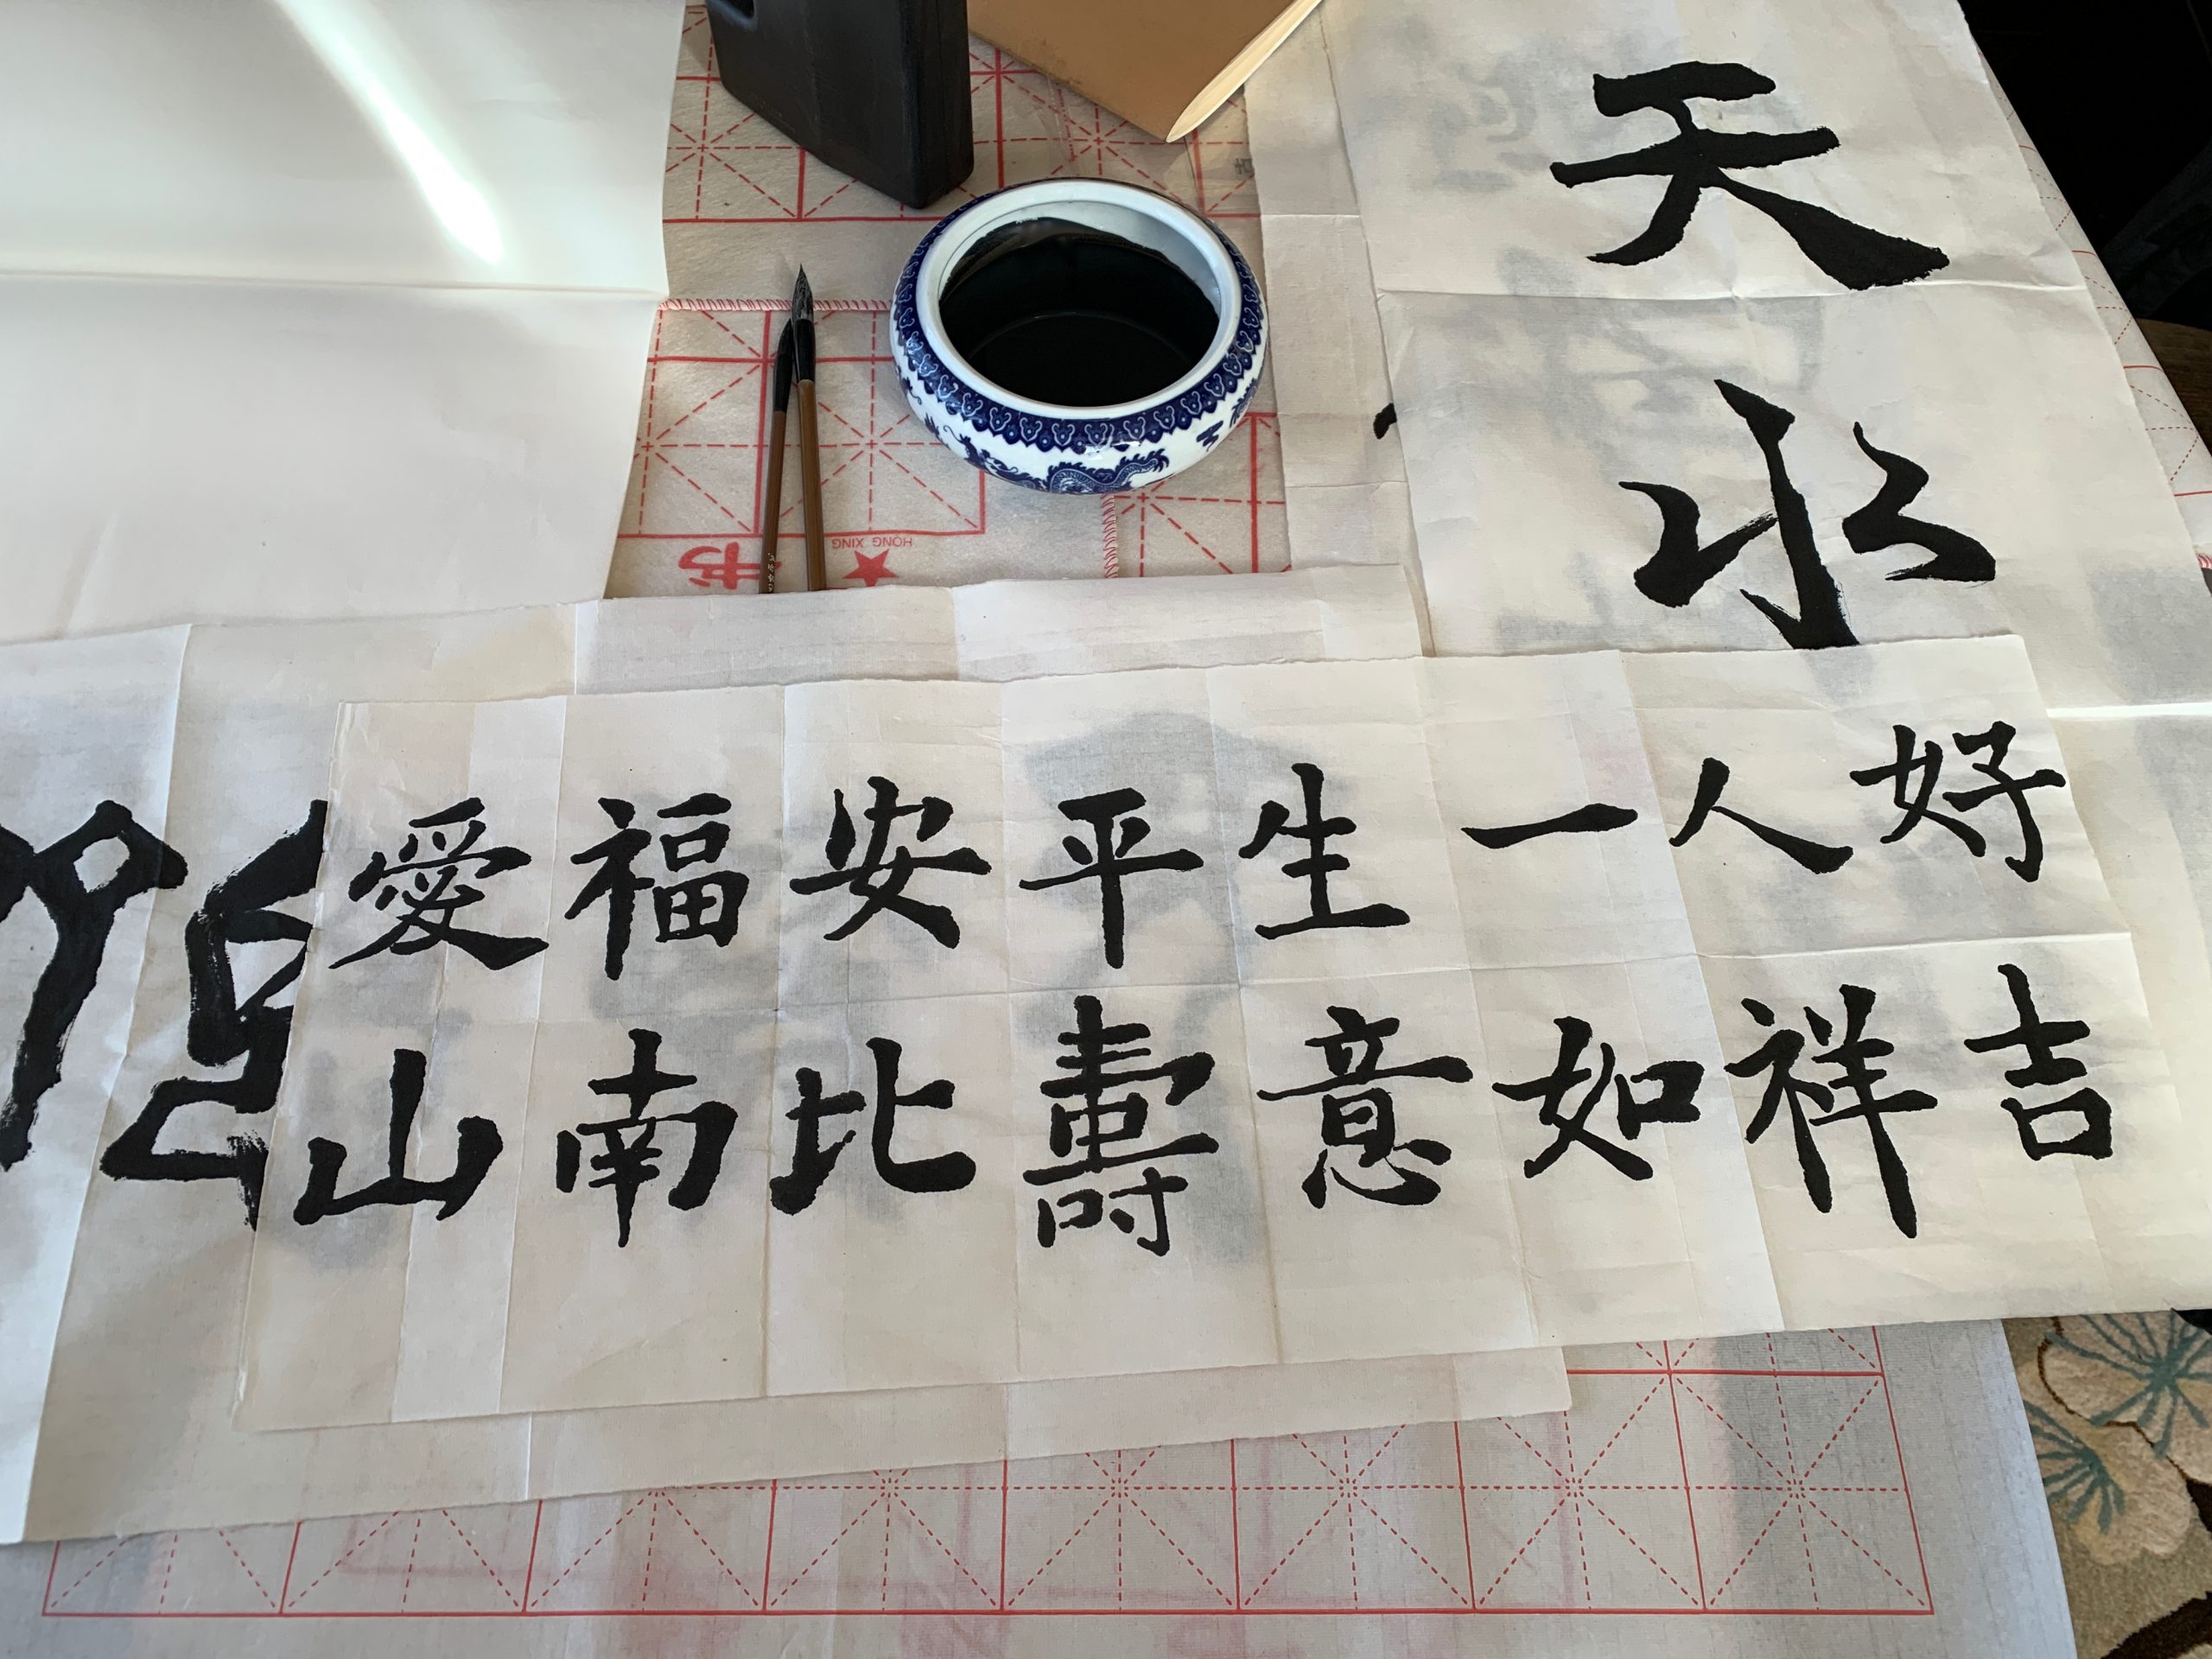 天水
好人一生平安福愛
吉祥如意壽比南山
HONG XING
书